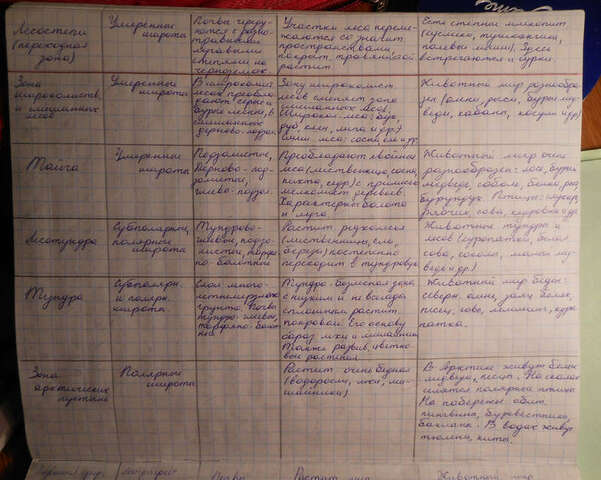 Лесостепи
(переходная
зона)
Умеренные
широта
Почвы череду-
ются с разно-
травными
луговыми
степями на
черноземах.
Участки леса переме-
жаются со значит.
пространствами,
покрыт. травянистой
растит.
Есть степные млекопит.
(суслики, тушканчики,
полевые мыши). Здесь
встречаются и бурые.
Зона
широколиств.
и смешанных
лесов
Умеренные
широта
В широколист.
лесах преобла-
дают серые и
бурые лесные, в
смешанных
дерново-подзол.
Зону широколист.
лесов сменяет зона
смешанных лесов.
Широкол. леса: бук,
дуб, клен, липа и др.
Животный мир разнообра-
зен (олени, рыси, бурые мед-
веди, кабаны, косули и др)
Тайга
Умеренные
широта
Подзолистые,
Дерново-под-
золистые,
глеево-подзол.
Преобладают хвойные
леса (лиственница, сосна,
пихта, кедр) с примесью
мелколист. деревьев.
Характерны болота
и луга.
Животный мир очень
разнообразен: лоси, бурые
медведи, соболи, белки, рыси
Бурундуки. Птицы: глухарь,
рябчик, сова, кедровка и др
Лесотундра
Субполярные,
полярные
широта
Тундрово-
глеевые, подзо-
листые, торфя-
но-болотные
Растит. редколесья
(лиственница, ель,
береза) постепенно
переходит в тундровую
Животные тундры и
лесов (куропатки, белая
сова, соболи, медве-
веди и др)
Тундра
Субполярн.
и полярн.
широта
Слой много-
летнемерзлого
грунта. Почвы
тундро-глеевые,
торфяно-болот-
ные
Тундра - безлесная зона
с низким и не всегда
сплошным растит.
покровом. Его основу
образ. мхи и лишайники
Также развив. цветко-
вые растения.
Животный мир беден:
северн. олень, заяц беляк,
песец, сова, лемминг, куро-
патка.
Зона
арктических
пустынь
Полярные
широта
Растит. очень бедная
(водоросли, мхи, ли-
шайники)
В Арктике живут белые
медведи, песцы. На скалах
селятся полярные птицы
На побережье обит.
пингвины, буревестники,
бакланы. В водах живут
тюлени, киты.
Почва
Растит. мир
Животный мир